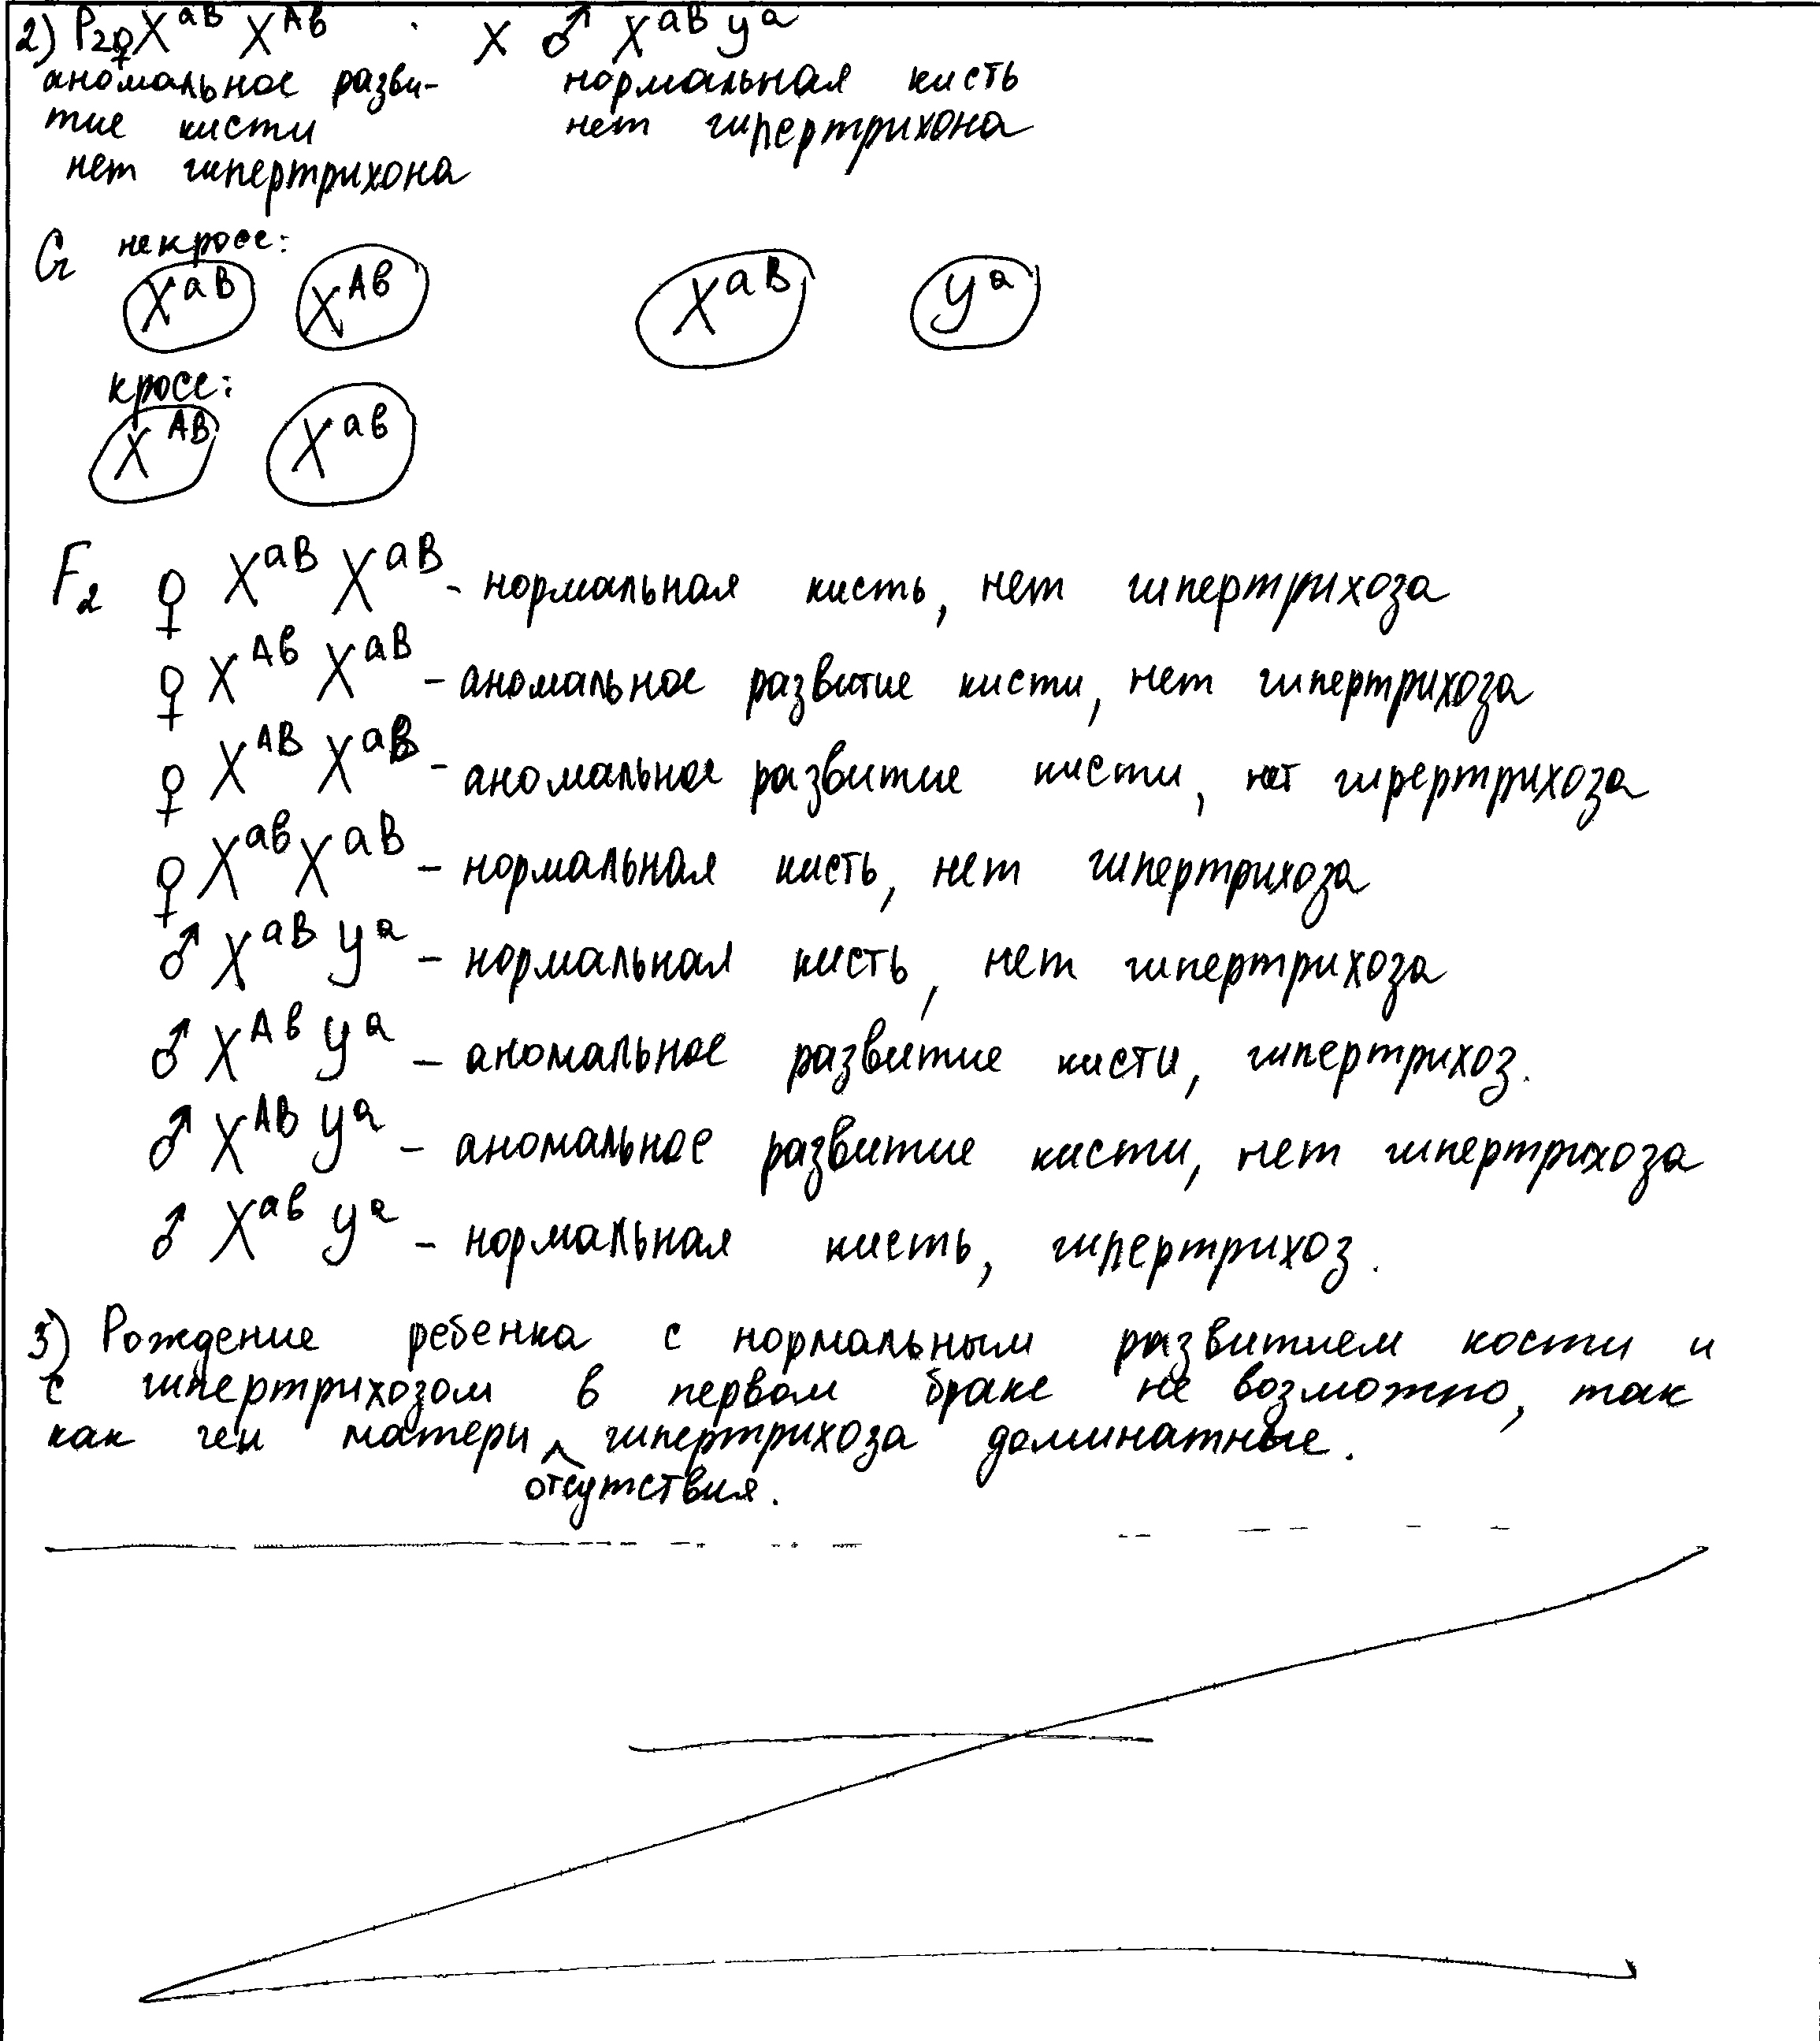 2) P₂ ♀ Xᵃᴮ Xᴬᵇ х ♂ Xᵃᴮ Yᵃ
аномальное разви- нормальная кисть
тие кисти нет гипертрихона
нет гипертрихона
G некросс:
Xᵃᴮ Xᴬᵇ Xᵃᴮ Yᵃ
кросс:
Xᴬᴮ Xᵃᵇ
F₂ ♀ Xᵃᴮ Xᵃᴮ - нормальная кисть, нет гипертрихоза
♀ Xᴬᵇ Xᵃᴮ - аномальное развитие кисти, нет гипертрихоза
♀ Xᴬᴮ Xᵃᴮ - аномальное развитие кисти, нет гипертрихоза
♀ Xᵃᵇ Xᵃᴮ - нормальная кисть, нет гипертрихоза
♂ Xᵃᴮ Yᵃ - нормальная кисть, нет гипертрихоза
♂ Xᴬᵇ Yᵃ - аномальное развитие кисти, гипертрихоз.
♂ Xᴬᴮ Yᵃ - аномальное развитие кисти, нет гипертрихоза
♂ Xᵃᵇ Yᵃ - нормальная кисть, гипертрихоз.
3) Рождение ребенка с нормальным развитием кости и
с гипертрихозом в первом браке не возможно, так
как ген матери ^ гипертрихоза доминатные.
отсутствия.